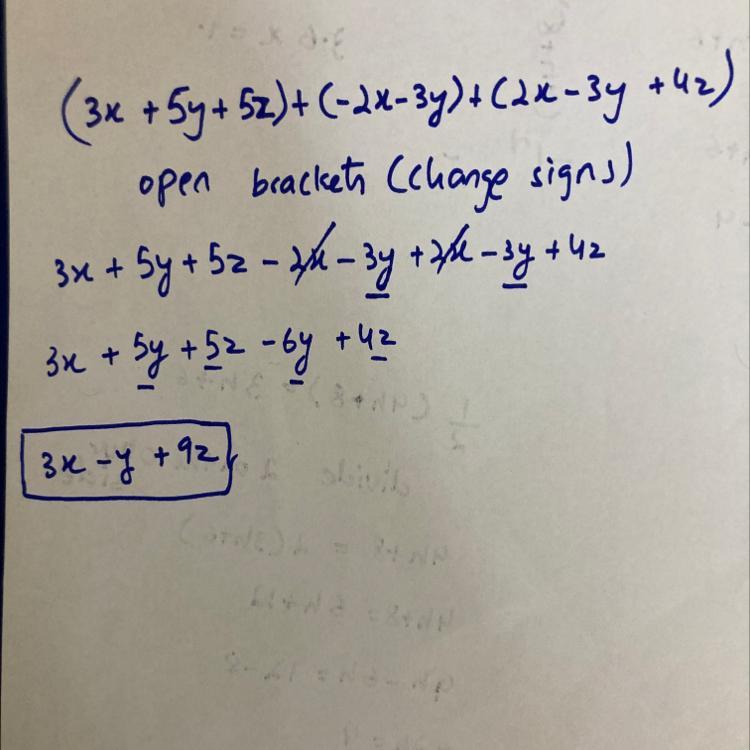 (3x + 5y + 5z) + (-2x - 3y) + (2x - 3y + 4z)
open brackets (change signs)
3x + 5y + 5z - 2x - 3y + 2x - 3y + 4z
3x + 5y + 5z - 6y + 4z
3x - y + 9z